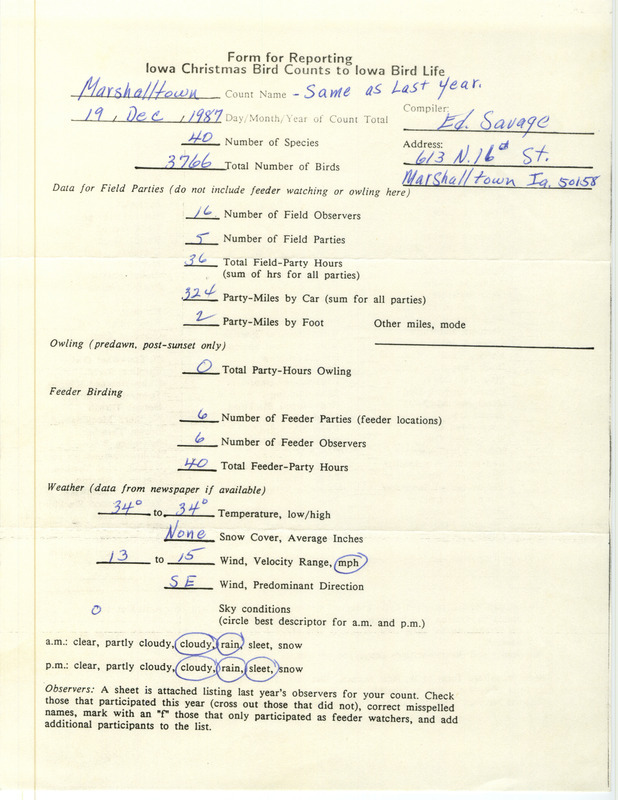 Form for Reporting
Iowa Christmas Bird Counts to Iowa Bird Life
Marshalltown Count Name - Same as Last Year.
19, Dec, 1987 Day/Month/Year of Count Total
Compiler:
Ed. Savage
40 Number of Species
Address:
613 N. 16th St.
3766 Total Number of Birds
Marshalltown Ia. 50158
Data for Field Parties (do not include feeder watching or owling here)
16 Number of Field Observers
5 Number of Field Parties
36 Total Field-Party Hours
(sum of hrs for all parties)
324 Party-Miles by Car (sum for all parties)
2 Party-Miles by Foot Other miles, mode
Owling (predawn, post-sunset only)
0 Total Party-Hours Owling
Feeder Birding
6 Number of Feeder Parties (feeder locations)
6 Number of Feeder Observers
40 Total Feeder-Party Hours
Weather (data from newspaper if available)
34° to 34° Temperature, low/high
None Snow Cover, Average Inches
13 to 15 Wind, Velocity Range, mph
SE Wind, Predominant Direction
0 Sky conditions
(circle best descriptor for a.m. and p.m.)
a.m.: clear, partly cloudy, cloudy, rain, sleet, snow
p.m.: clear, partly cloudy, cloudy, rain, sleet, snow
Observers: A sheet is attached listing last year's observers for your count. Check
those that participated this year (cross out those that did not), correct misspelled
names, mark with an "f" those that only participated as feeder watchers, and add
additional participants to the list.